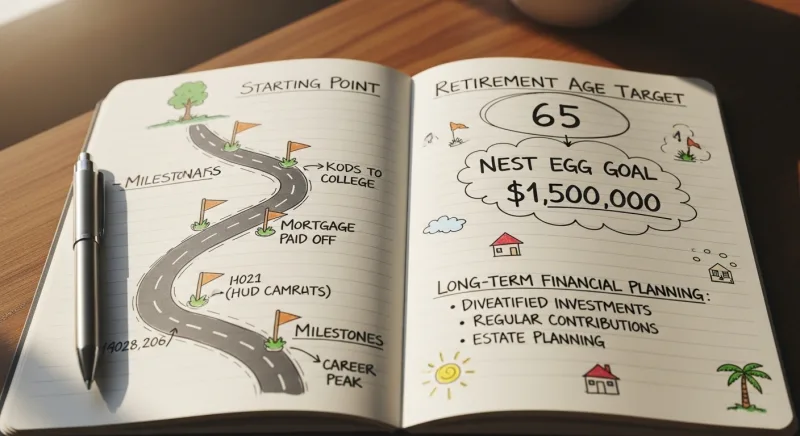 STARTING POINT
MILESTONAFS
KODS TO
COLLEGE
MORTGAGE
PAID OFF
H021
(HUD CAMRUTS)
MILESTONES
CAREER
PEAK
RETIREMENT AGE TARGET
65
NEST EGG GOAL
$1,500,000
LONG-TERM FINANCIAL PLANNING:
• DIVEATIFIED INVESTMENTS
• REGULAR CONTRIBUTIONS
• ESTATE PLANNING